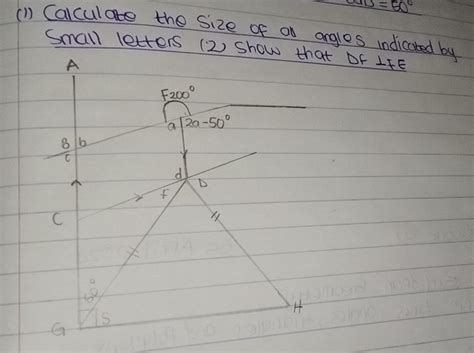 = 60°
(1) Calculate the size of all angles indicated by
small letters (2) show that DF ⊥ FE
A
F200°
a 2a-50°
B b
c
d D
F
C
H
G